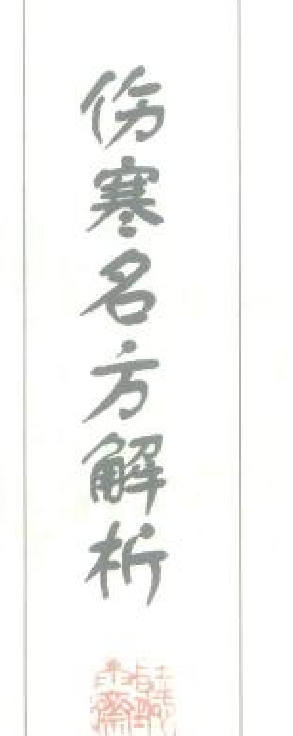 伤寒名方解析